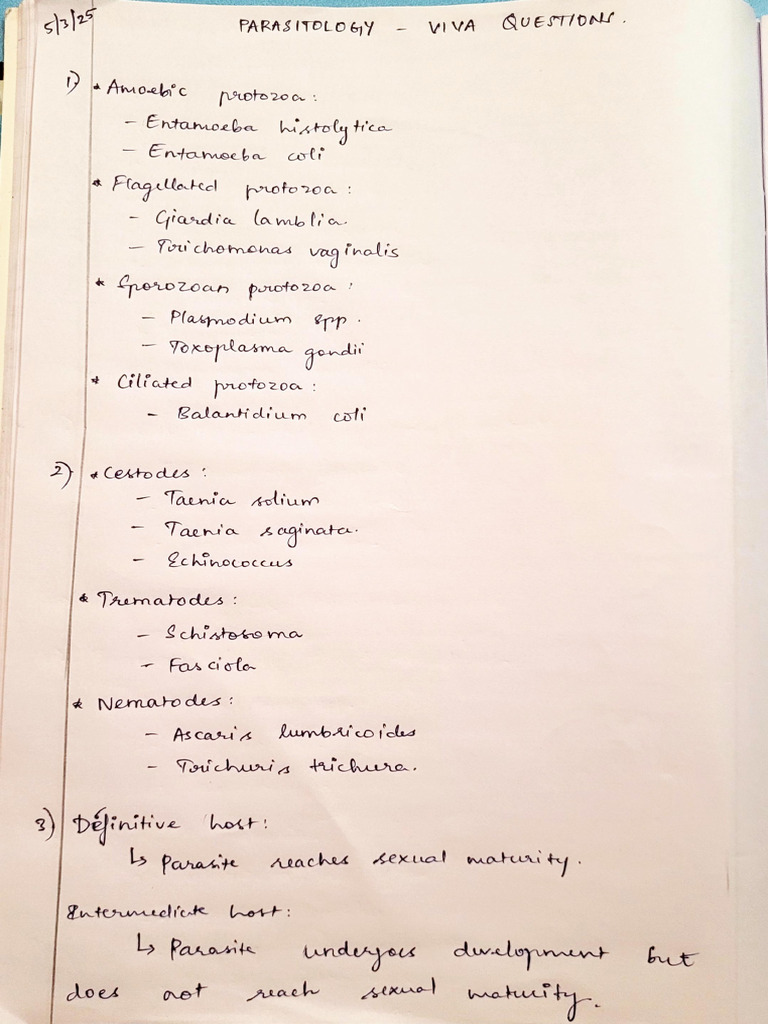 5/3/25
PARASITOLOGY - VIVA QUESTIONS.
1) * Amoebic protozoa :
- Entamoeba histolytica
- Entamoeba coli
* Flagellated protozoa :
- Giardia lamblia.
- Trichomonas vaginalis
* Sporozoan protozoa :
- Plasmodium spp.
- Toxoplasma gondii
* Ciliated protozoa :
- Balantidium coli
2) * Cestodes :
- Taenia solium
- Taenia saginata.
- Echinococcus
* Trematodes :
- Schistosoma
- Fasciola
* Nematodes :
- Ascaris lumbricoides
- Trichuris trichura.
3) Definitive host :
↳ Parasite reaches sexual maturity.
Intermediate host :
↳ Parasite undergoes development but
does not reach sexual maturity.